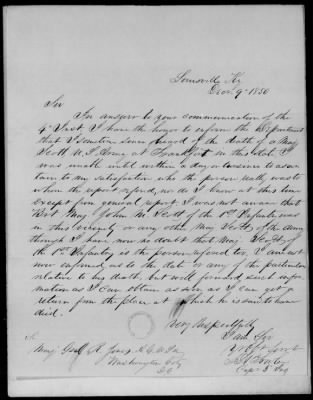 Louisville Ky
Decr. 9th 1850
Sir
In answer to your communication of the
4th Inst I have the honor to inform the Department
that I sometime since of the death of a Maj
Scott U.S. Army at Frankfort in this State I
was unable until within a day or two since to ascer
tain to my satisfaction who the person really was to
whom the report refered, nor do I know at this time
except from general report. I was not aware that
Bvt. Maj John M. Scott of the 1st Infantry was
in this vicinity or any other Maj Scott of the army
though I have now no doubt that Maj Scott of
the 1st Infantry is the person refered to. I am not
now informed as to the date or any of the particulars
relative to his death, but will forward such infor
mation as I can obtain as soon as I can get a
return from the place at which he is said to have
died.
Very Respectfully
I am Sir
Yr Obt Servt
Maj Genl R. Jones A.G. U.S.A.
Washington City
D.C.